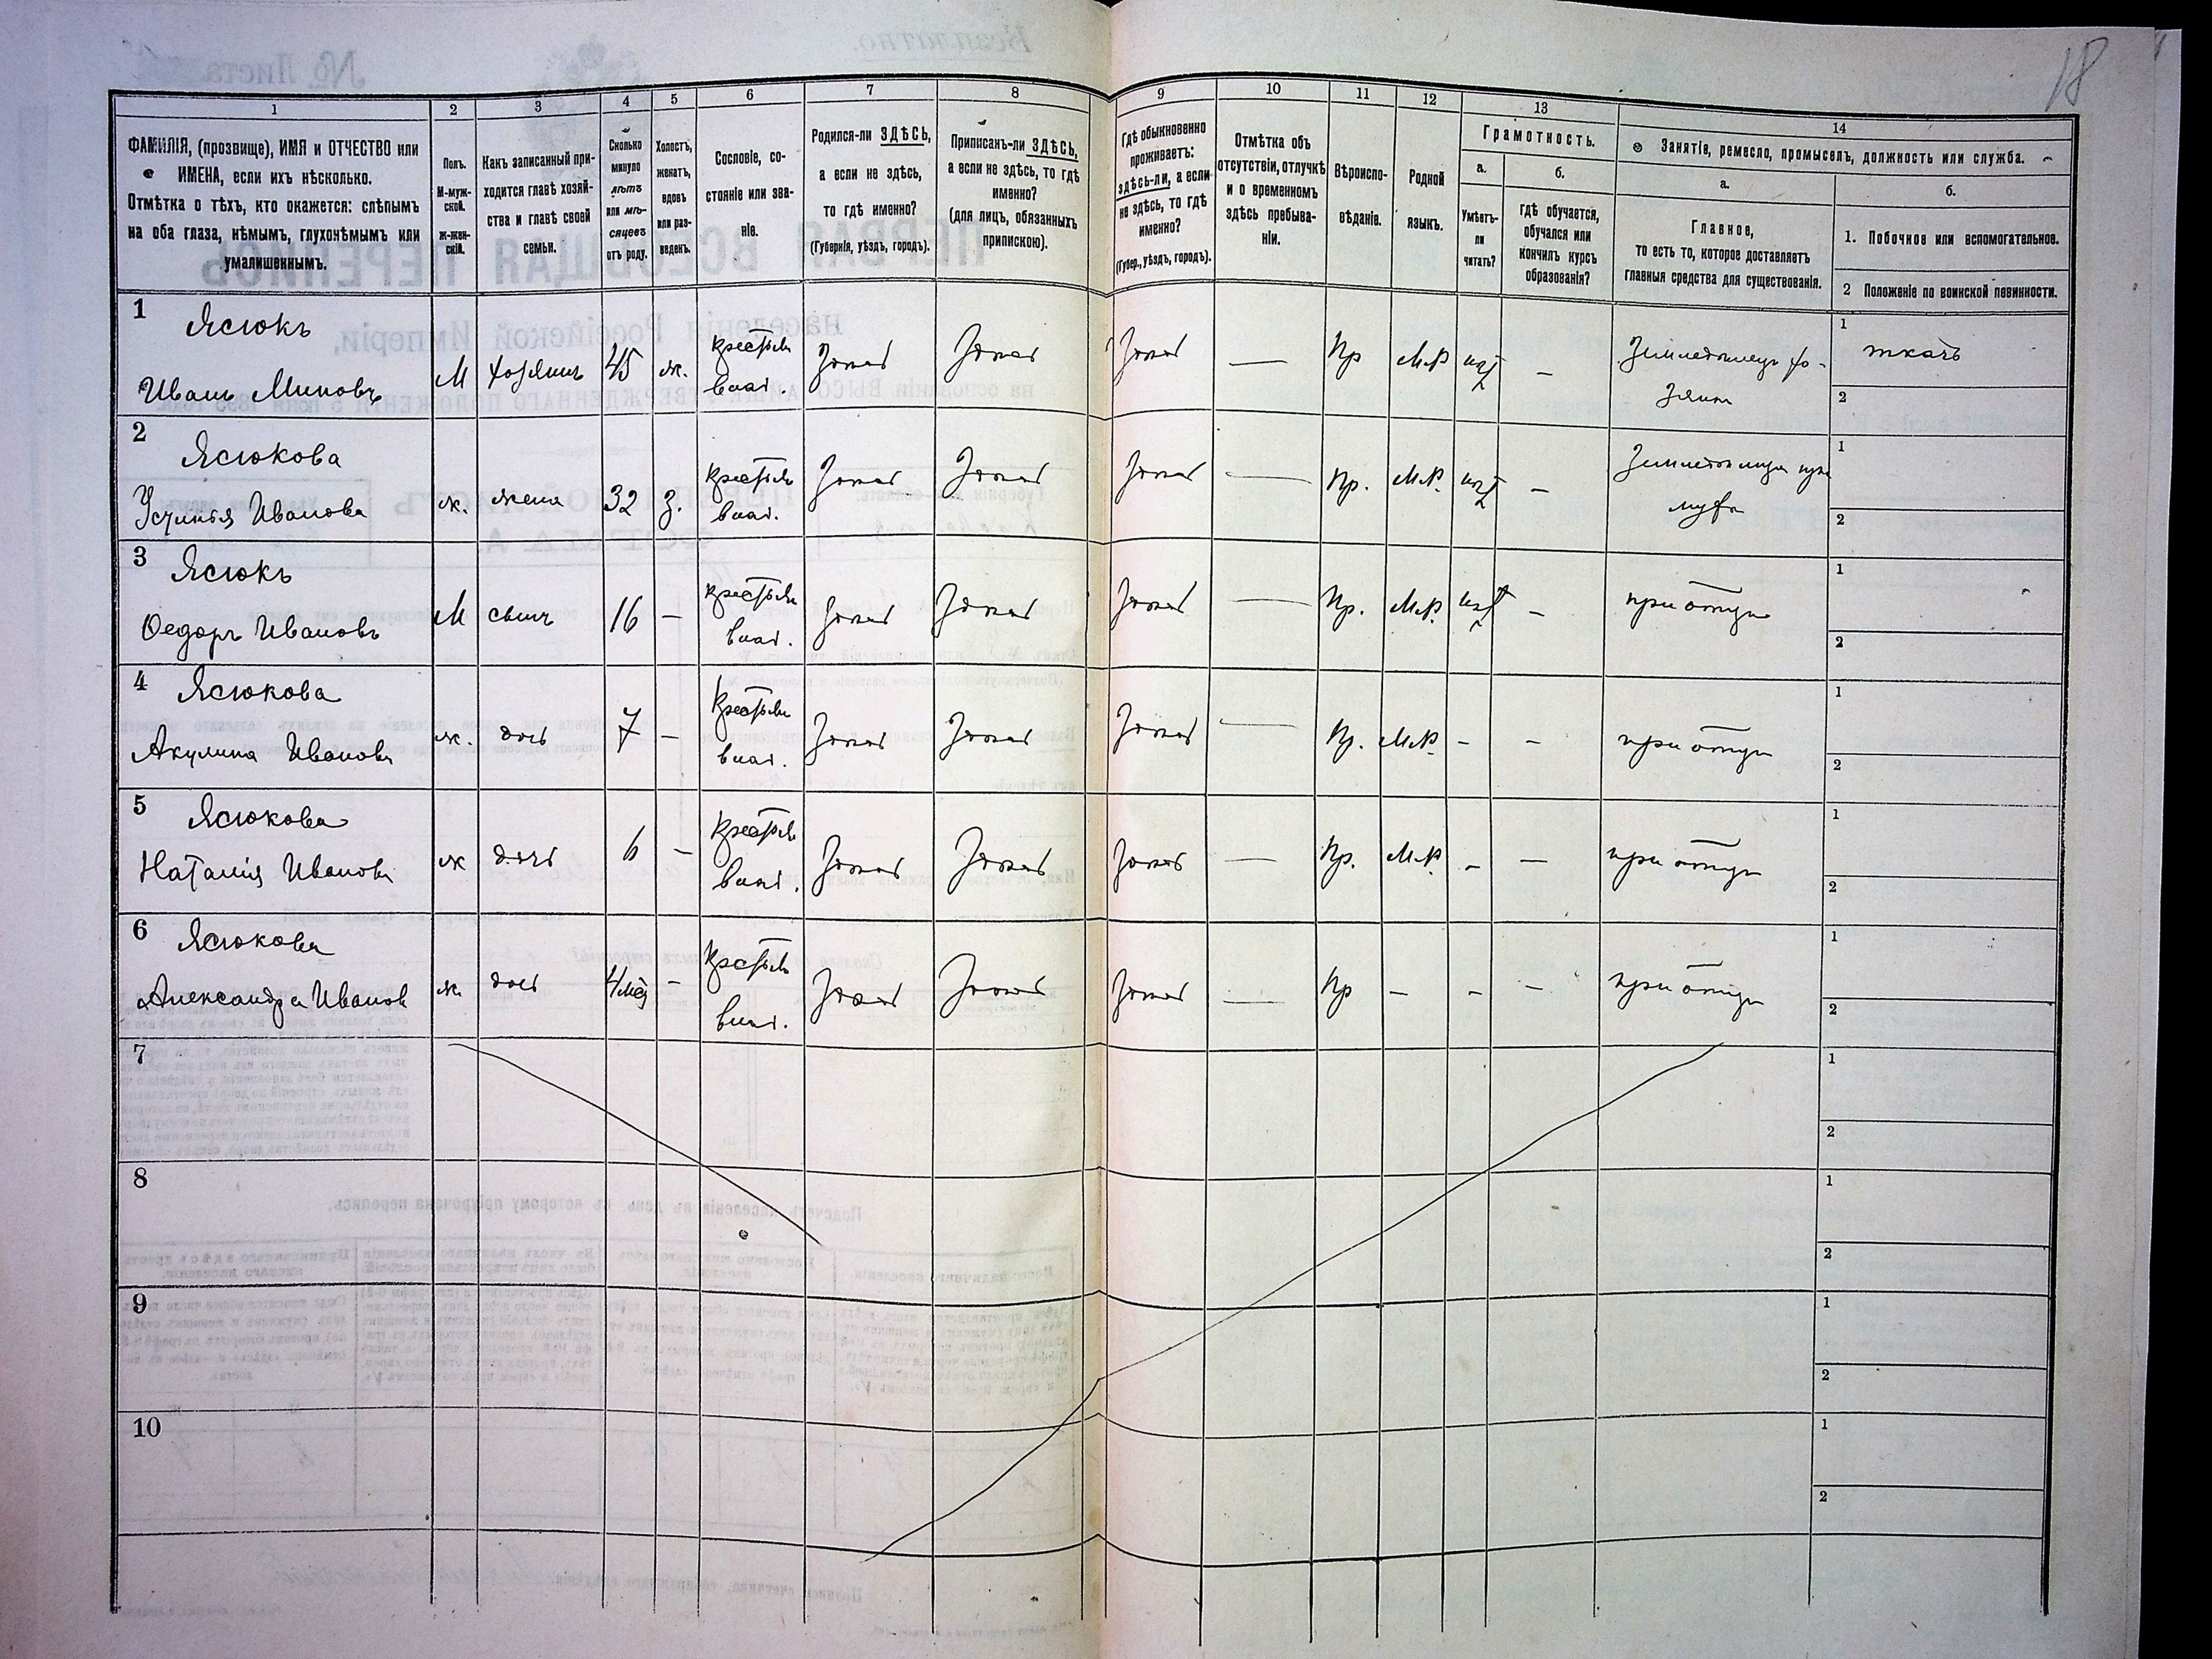 18
1 2 3 4 5 6 7 8 9 10 11 12 13 14
ФАМИЛІЯ, (прозвище), ИМЯ и ОТЧЕСТВО или
ИМЕНА, если ихъ нѣсколько.
Отмѣтка о тѣхъ, кто окажется: слѣпымъ
на оба глаза, нѣмымъ, глухонѣмымъ или
умалишеннымъ.
Полъ.
М-муж-
ской.
Ж-жен-
скій.
Какъ записанный при-
ходится главѣ хозяй-
ства и главѣ своей
семьи.
Сколько
минуло
лѣтъ
или мѣ-
сяцевъ
отъ роду.
Холостъ,
женатъ,
вдовъ
или раз-
веденъ.
Сословіе, со-
стояніе или зва-
ніе.
Родился-ли ЗДѢСЬ,
а если не здѣсь,
то гдѣ именно?
(Губернія, уѣздъ, городъ).
Приписанъ-ли ЗДѢСЬ,
а если не здѣсь, то гдѣ
именно?
(для лицъ, обязанныхъ
припискою).
Гдѣ обыкновенно
проживаетъ:
здѣсь-ли, а если
не здѣсь, то гдѣ
именно?
(Губер., уѣздъ, городъ).
Отмѣтка объ
отсутствіи, отлучкѣ
и о временномъ
здѣсь пребыва-
ніи.
Вѣроиспо-
вѣданіе.
Родной
языкъ.
Грамотность.
а.
Умѣетъ-
ли
читать?
б.
гдѣ обучается,
обучался или
кончилъ курсъ
образованія?
Занятіе, ремесло, промыселъ, должность или служба.
а.
Главное,
то есть то, которое доставляетъ
главныя средства для существованія.
б.
1. Побочное или вспомогательное.
2 Положеніе по воинской повинности.
1 Ясюкъ
Иванъ Миновъ М хозяинъ 45 ж. крестьян
влад. здѣсь здѣсь здѣсь — Пр М.Р нѣт — Земледѣлецъ хо-
зяинъ
1 ткачъ
2
2 Ясюкова
Устинія Иванова ж. жена 32 з. крестьян
влад. здѣсь здѣсь здѣсь — Пр. М.Р. нѣт — Земледѣлица при
мужѣ
1
2
3 Ясюкъ
Ѳедоръ Ивановъ М сынъ 16 — крестьян
влад. здѣсь здѣсь здѣсь — Пр. М.Р. нѣт — при отцѣ
1
2
4 Ясюкова
Акулина Иванова ж. дочь 7 — крестьян
влад. здѣсь здѣсь здѣсь — Пр. М.Р. — — при отцѣ
1
2
5 Ясюкова
Наталія Иванова ж дочь 6 — крестьян
влад. здѣсь здѣсь здѣсь — Пр. М.Р. — — при отцѣ
1
2
6 Ясюкова
Александра Иванов ж. дочь 4 мѣс — крестьян
влад. здѣсь здѣсь здѣсь — Пр — — — при отцѣ
1
2
7
1
2
8
1
2
9
1
2
10
1
2